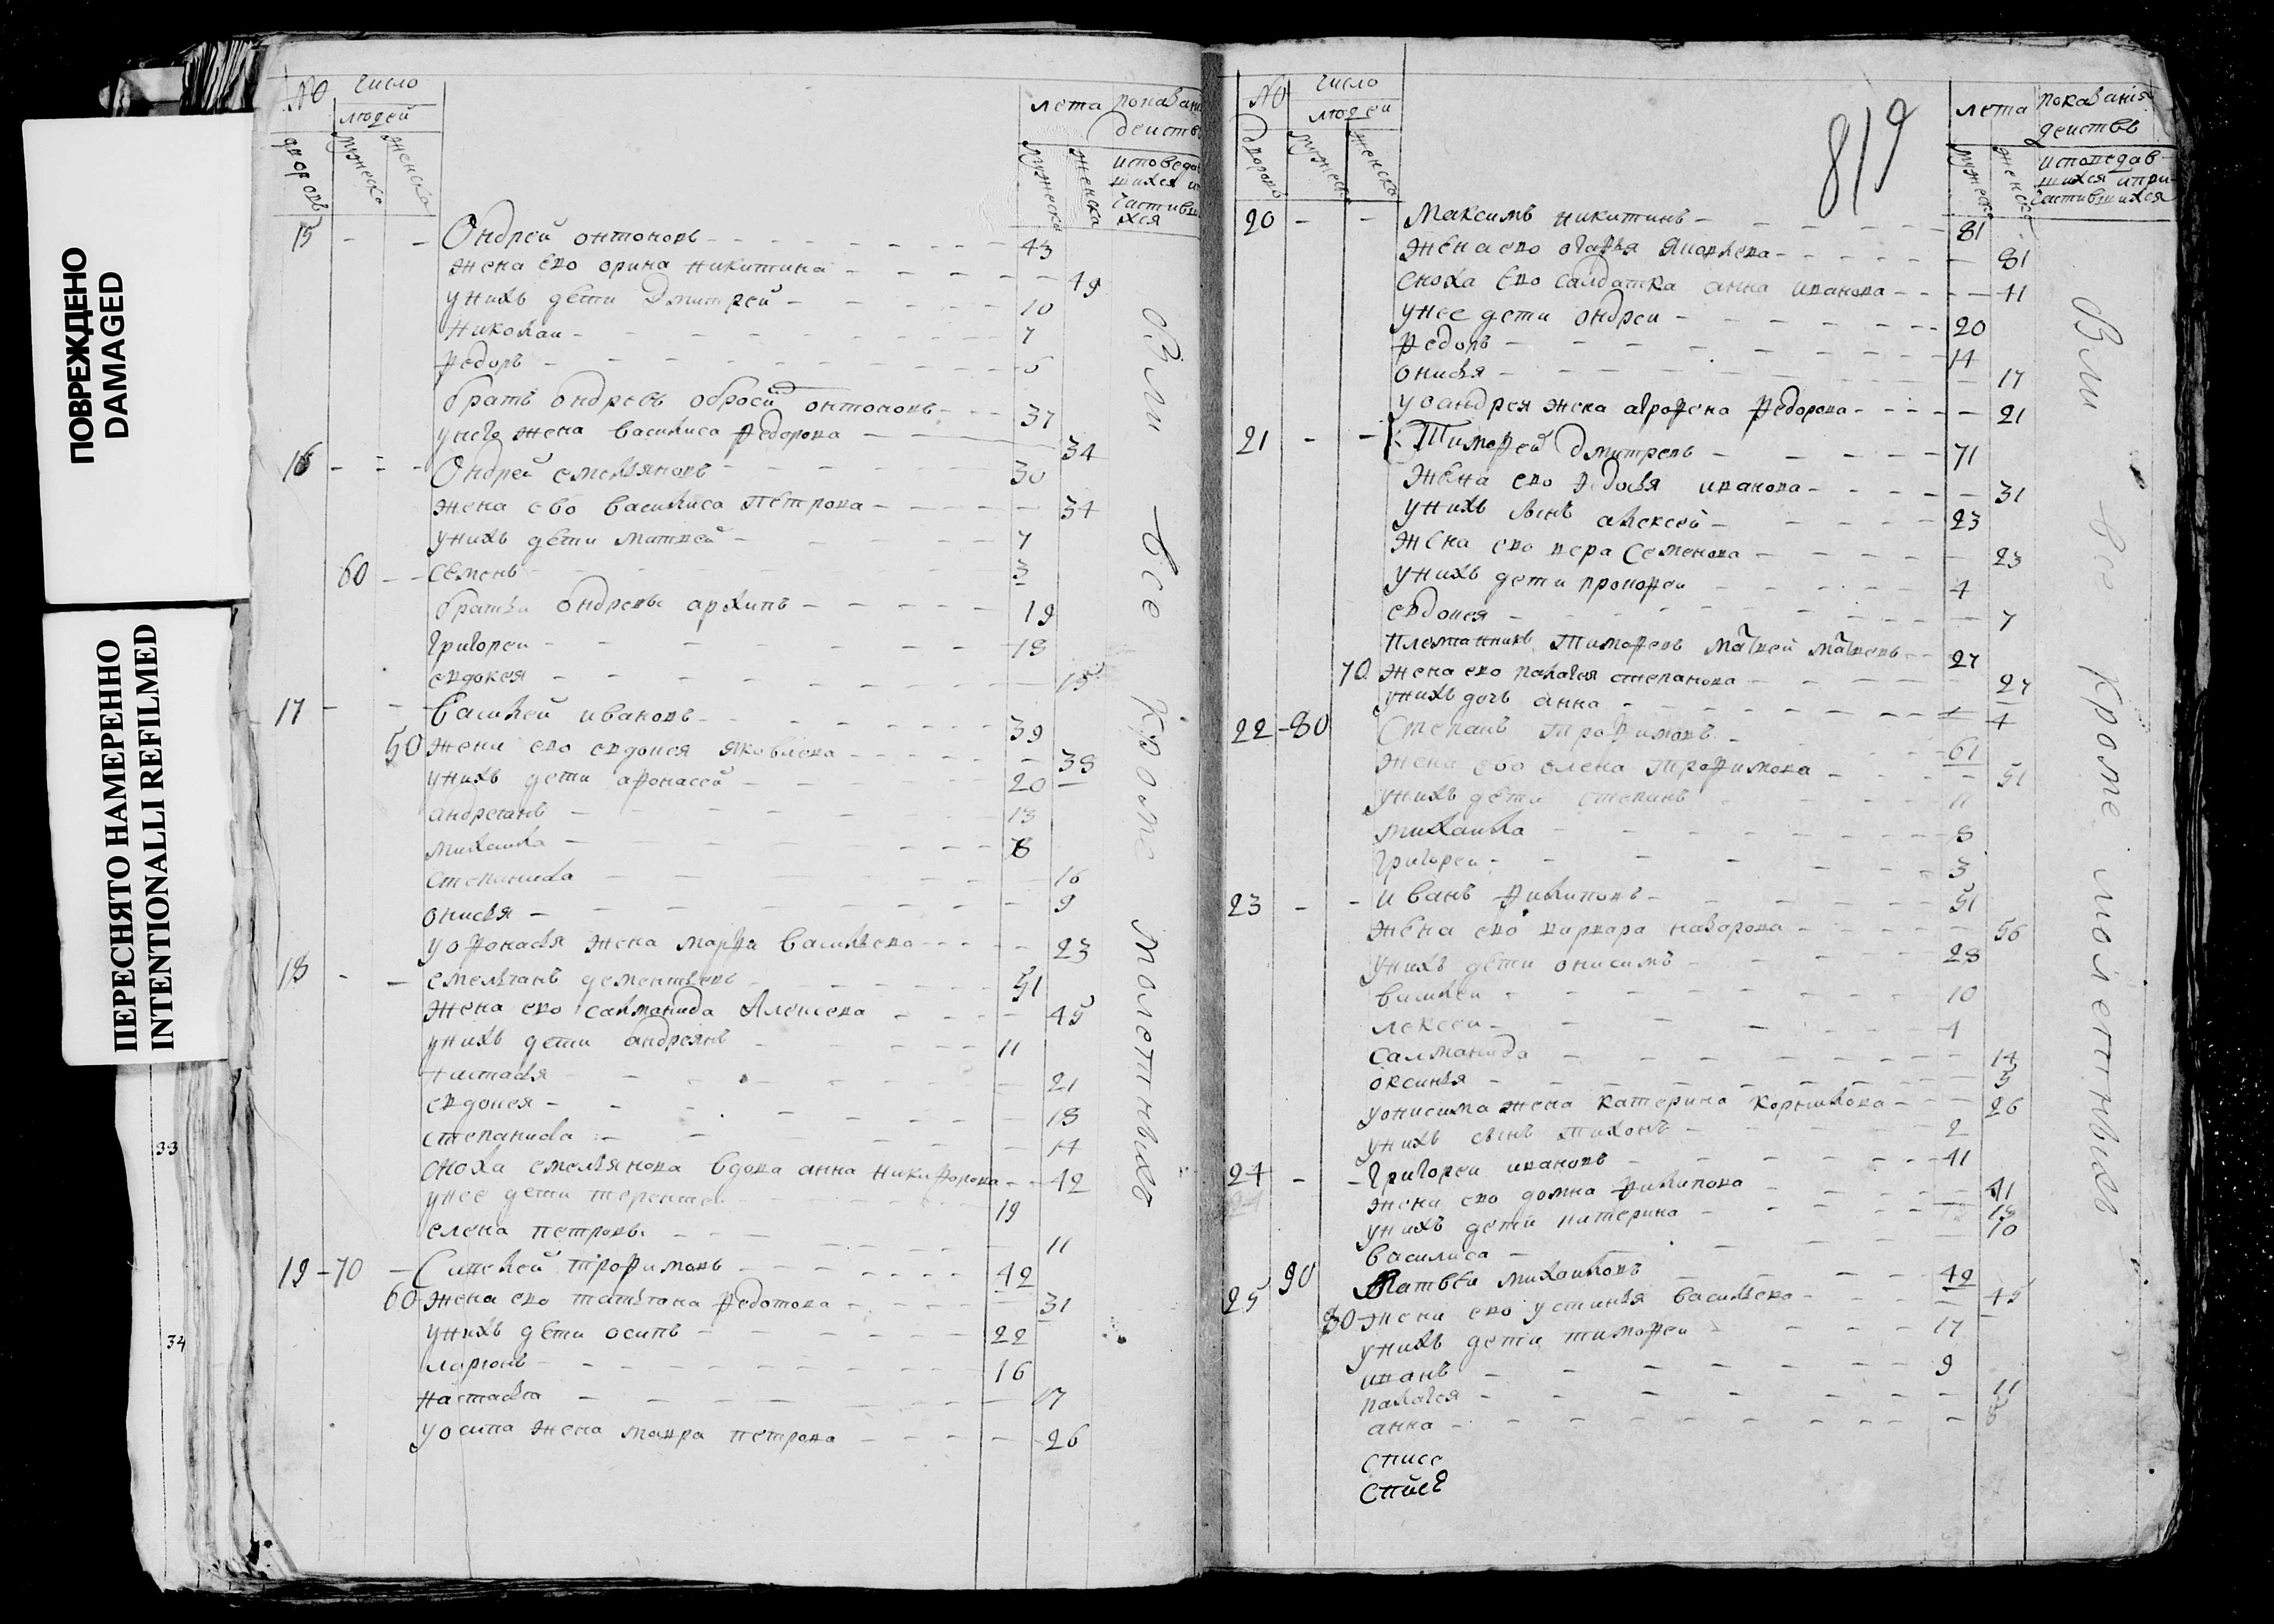 ПОВРЕЖДЕНО
DAMAGED
ПЕРЕСНЯТО НАМЕРЕННО
INTENTIONALLI REFILMED
33
34
№ число людей
дворовъ мужеска женска
лета
мужеска женска
исповедавшихся и причастившихся
15 - - Ондрей онтоновъ 43
жена ево орина никитина 49
у нихъ дети Дмитрей 10
Николаи 7
Ѳедоръ
братъ ондревъ обросим онтоновъ 37
у него жена василиса Ѳедорова 34
16 - - Ондрей емельяновъ 30
жена ево василиса петрова 34
у нихъ дети матвей 7
60 - - семенъ 3
братья ондревы архипъ 19
григореи 18
евдокея 15
17 - - Василей ивановъ 39
50 жена ево евдокея яковлева 38
у нихъ дети афонасей 20
андреянъ 13
михаила 8
степанида 16
онисья 9
у офонасья жена марфа васильева 23
18 - - емельянъ дементьевъ 51
жена ево саломанида Алексева 45
у нихъ дети андреянъ 11
настасья 21
евдокея 18
степанида 14
сноха емельянова вдова анна никифорова 42
у нее дети терентеи 19
елена петровы 11
19 - 70 - трофимовъ 42
60 жена ево татьяна Ѳедотова 31
у нихъ дети осипъ 22
ларионъ 16
настасья 17
у осипа жена мавра петрова 26
все кроме молетнныхъ
819
№ число людей
дворовъ мужеска женска
лета показания действъ
мужеска женска
исповедавшихся и причастившихся
20 - - Максимъ никитинъ 81
жена ево яковлева 81
сноха ево салдатка анна иванова 41
у нее дети ондреи 20
Ѳедоръ 14
онисья 17
у оандрея жена аграфена Ѳедорова 21
21 - - Тимофей Дмитревъ 71
жена ево Ѳедосья иванова 31
у нихъ сынъ алексей 23
жена ево вера семенова 23
у нихъ дети прокофеи 4
евдокея 7
племянникъ тимофеевъ матвей матвеевъ 27
70 жена ево палагея степанова 27
у нихъ дочь анна 4
22 - 80 Степанъ трофимовъ 61
жена ево елена трофимова 51
у нихъ дети степанъ 11
михаила 8
григореи 3
23 - - иванъ филиповъ 51
жена ево варвара назарова 56
у нихъ дети онисимъ 28
василеи 10
лексеи 4
саломанида 14
оксинья
у онисима жена катерина корнилова 26
у нихъ сынъ тихонъ 2
24 - - григореи ивановъ 41
жена ево домна филипова 41
у нихъ дети катерина 18
василиса 10
25 90 Матвеи михаиловъ 42
80 жена ево устинья васильева 45
у нихъ дети тимофеи 17
иванъ 9
палагея 11
анна
все кроме молетнныхъ